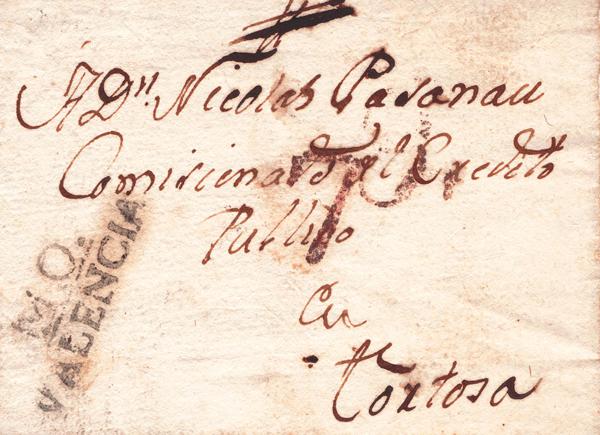 A Dn. Nicolas Pasanau
Comisionado del Credito
Publico
en
Tortosa
M.O.
VALENCIA